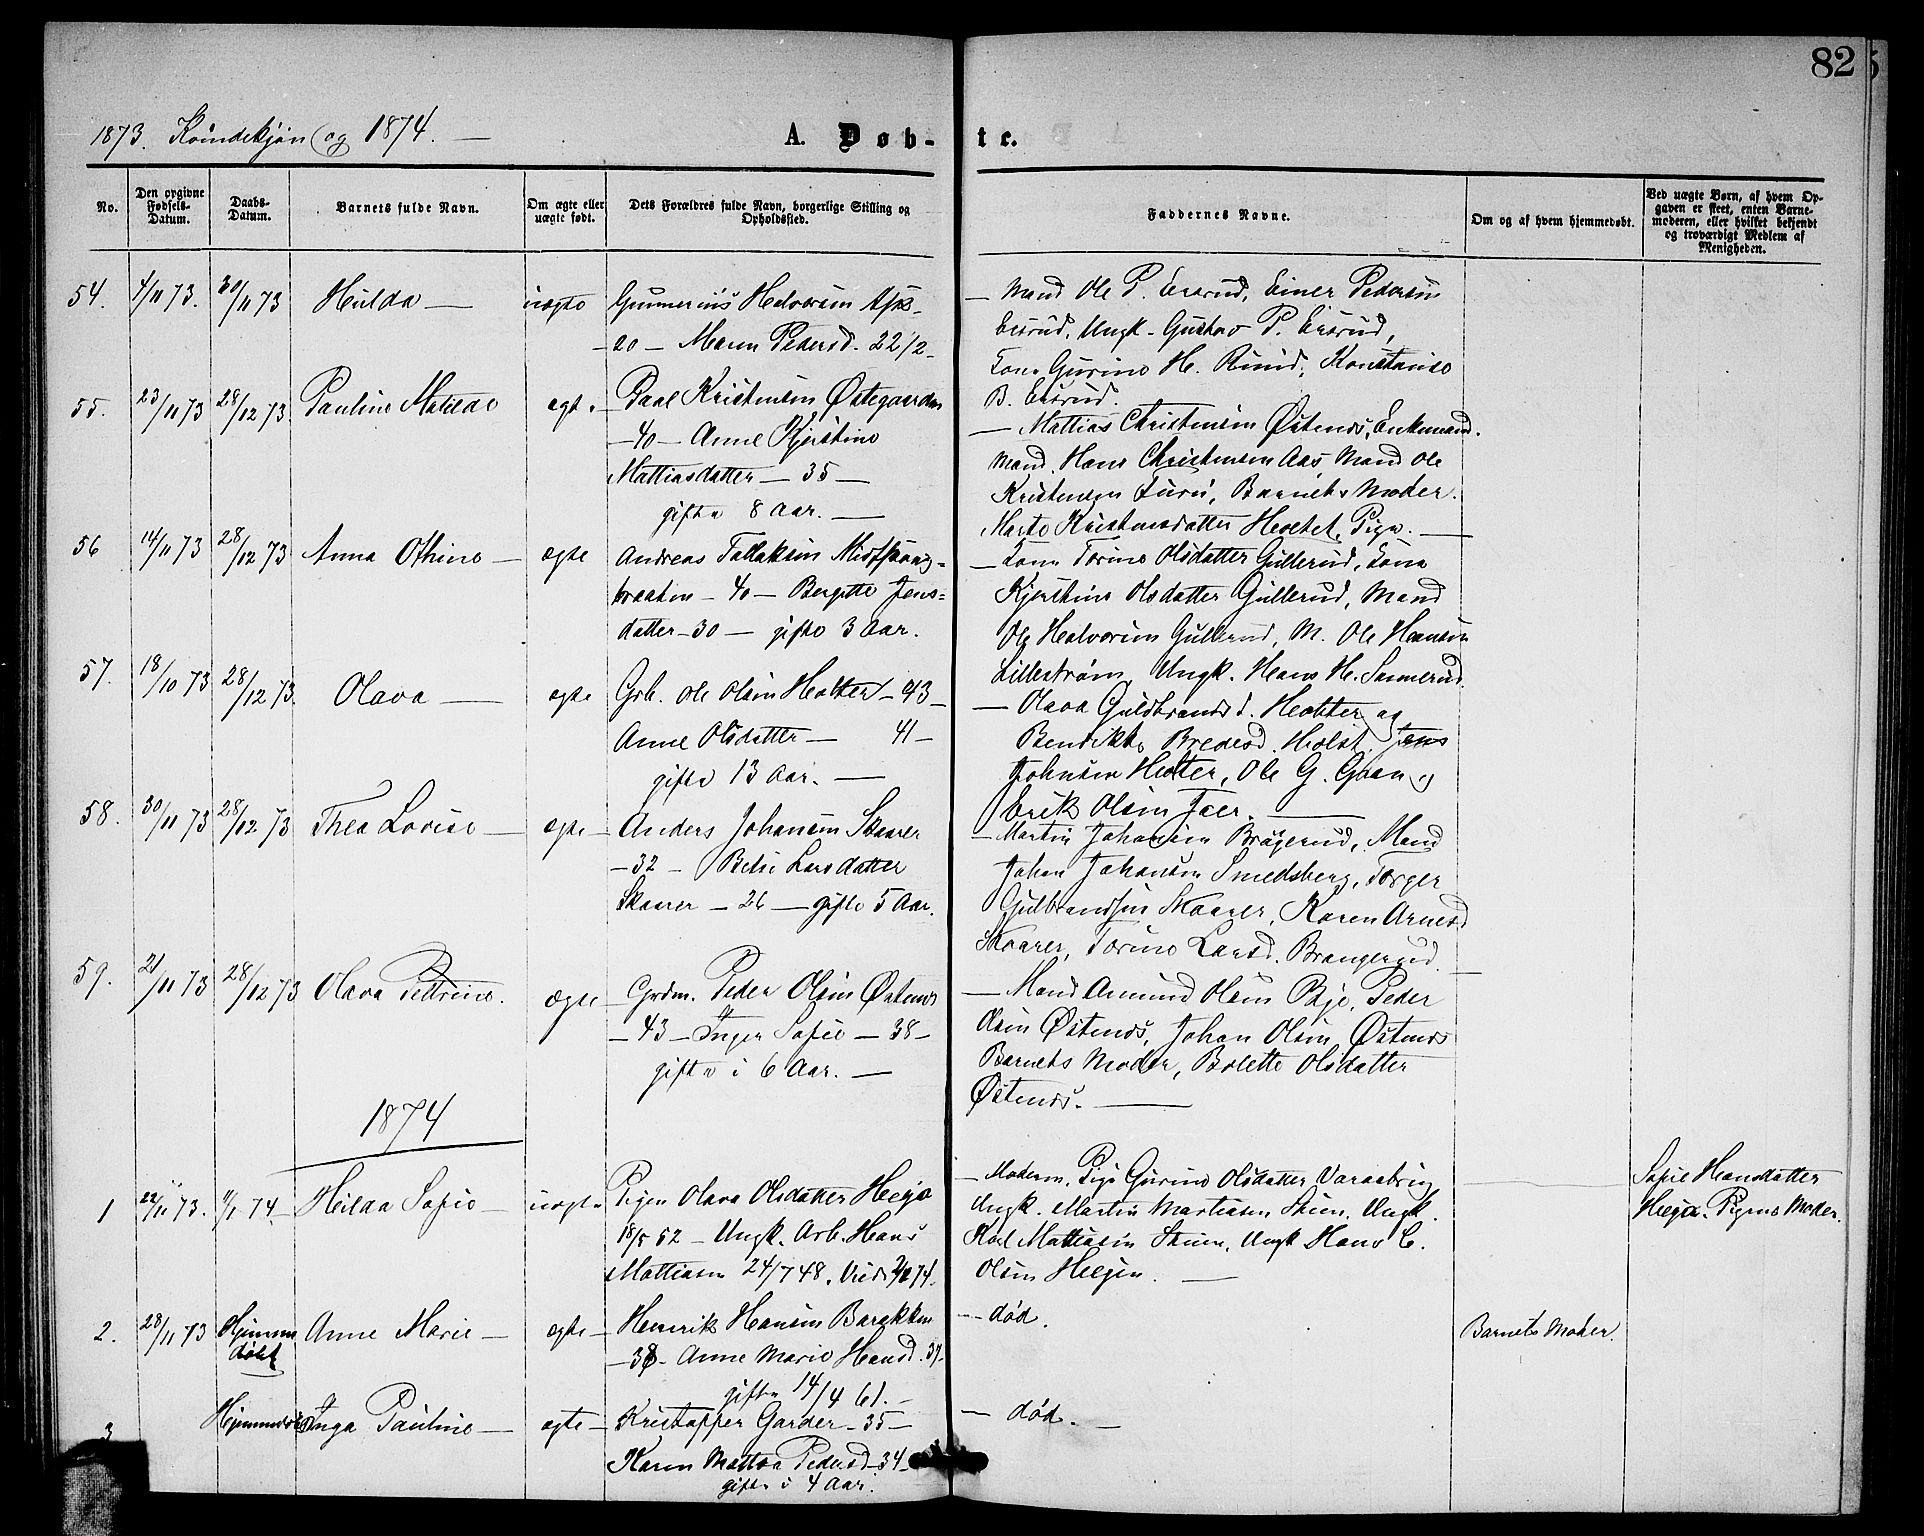 82
1873. Kvindekjøn og 1874. —
A. Døb- te.
No.
Den opgivne Fødsels-Datum.
Daabs-Datum.
Barnets fulde Navn.
Om ægte eller uægte født.
Dets Forældres fulde Navn, borgerlige Stilling og Opholdssted.
Faddernes Navne.
Om og af hvem hjemmedøbt.
Ved uægte Børn, af hvem Opgaven er skeet, enten Barnemoderen, eller hvilket bekjendt og troværdigt Medlem af Menigheden.
54. 4/11 73. 30/11 73 Hulda — uægte Gunnerius Halvorsen
20 — Maren Pedersd. 22 1/2
— Mand Ole P. Eisrud, Einer Pedersen
Eisrud, Ungk. Gustav P. Eisrud,
Kone Gurine H. Rund, Konstanse
B. Eisrud.
55. 23/11 73 28/12 73 Pauline Matilde ægte. Paal Kristensen Østegaarden
— 40 — Anne Kjerstine
Mattiasdatter — 35 —
gifte 8 Aar. —
— Mattias Christensen Østenes, Enkemand.
Mand. Hans Christensen Aas, Mand Ole
Kristensen Furu, Barnets Moder.
Marte Kristensdatter, Pige. —
56 14/11 73 28/12 73 Anna Othine — ægte Andreas Tollaksen Midtskaug-
braaten — 40 — Bergitte Jens-
datter — 30 — gifte 3 Aar.
— Kone Torine Olsdatter Gullerud, Kone
Kjerstine Olsdatter Gullerud, Mand
Ole Halvorsen Gullerud, M. Ole Hansen
Lillestrøm, Ungk. Hans H. Sannerud.
57. 18/10 73 28/12 73. Olava — ægte Grb. Ole Olsen Holter — 43 —
Anne Olsdatter — 41 —
gifte 13 Aar. —
— Olava Guldbrandsd. Holter og
Bendikte Bredesd. Holst. Jens
Johnsen Holter, Ole G. Gran og
Erik Olsen Foer. —
58. 30/11 73 28/12 73 Thea Lovise — ægte — Anders Johansen Skaarer
— 32 — Betsi Larsdatter
Skaarer — 26 — gifte 5 Aar.
— Martin Johansen Brågerud, Mand
Johan Johansen Smedsberg, Torger
Gulbrandsen Skaarer, Karen Arnesd
Skaarer, Torine Larsd. Brangerud. —
59. 21/11 73 28/12 73 Olava Petrine. ægte Grdm. Peder Olsen Østenes
— 43 — Inger Sofie — 38 —
gifte i 6 Aar. —
— Mand Amund Olsen Bøje, Peder
Olsen Østenes, Johan Olsen Østenes
Barnets Moder, Bolette Olsdatter
Østenes. —
1874
1 22/11 73. 11/1 74. Hilda Sofie — uægte Pigen Olava Olsdatter Heeja
18/5 52 — Ungk. Arb. Hans
Mattiasen 24/7 48.
— Moderen, Pige Gurine Olsdatter
Ungk. Martin Martiasen Skuen, Ungk.
Karl Mattiasen Skuen, Ungk Hans C.
Olsen Heejen. —
Sofie Hansdatter
Heeja. Pigens Moder.
2. 28/11 73 Hjemme
døbt
Anne Marie — ægte — Henrik Hansen Barakken
— 38 — Anne Marie Hansd. 37.
gifte 14/4 61. —
— død.
Barnets Moder.
3 Hjemmedøbt Inga Pauline — ægte — Kristoffer Garder — 35 —
Karen Mattea Pedersd — 34 —
gifte i 4 Aar.
— død. —